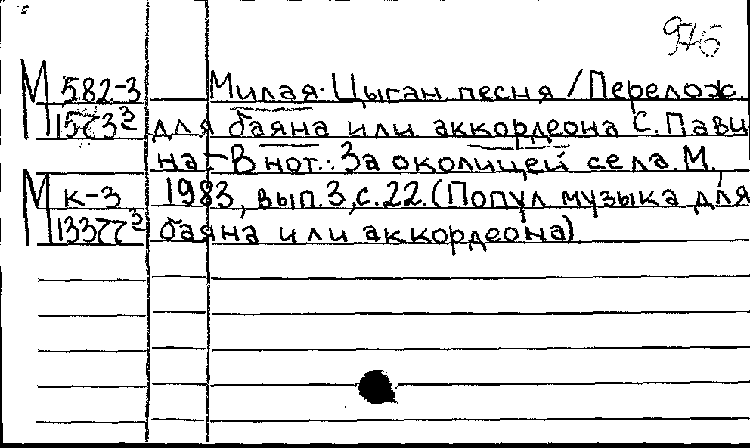 976
М 582-3 Милая: Цыган. песня / Перелож.
для баяна или аккордеона С. Пави
на – В нот.: За околицей села. М.,
М к-3 1983, вып. 3, с. 22. (Попул музыка для
баяна или аккордеона)